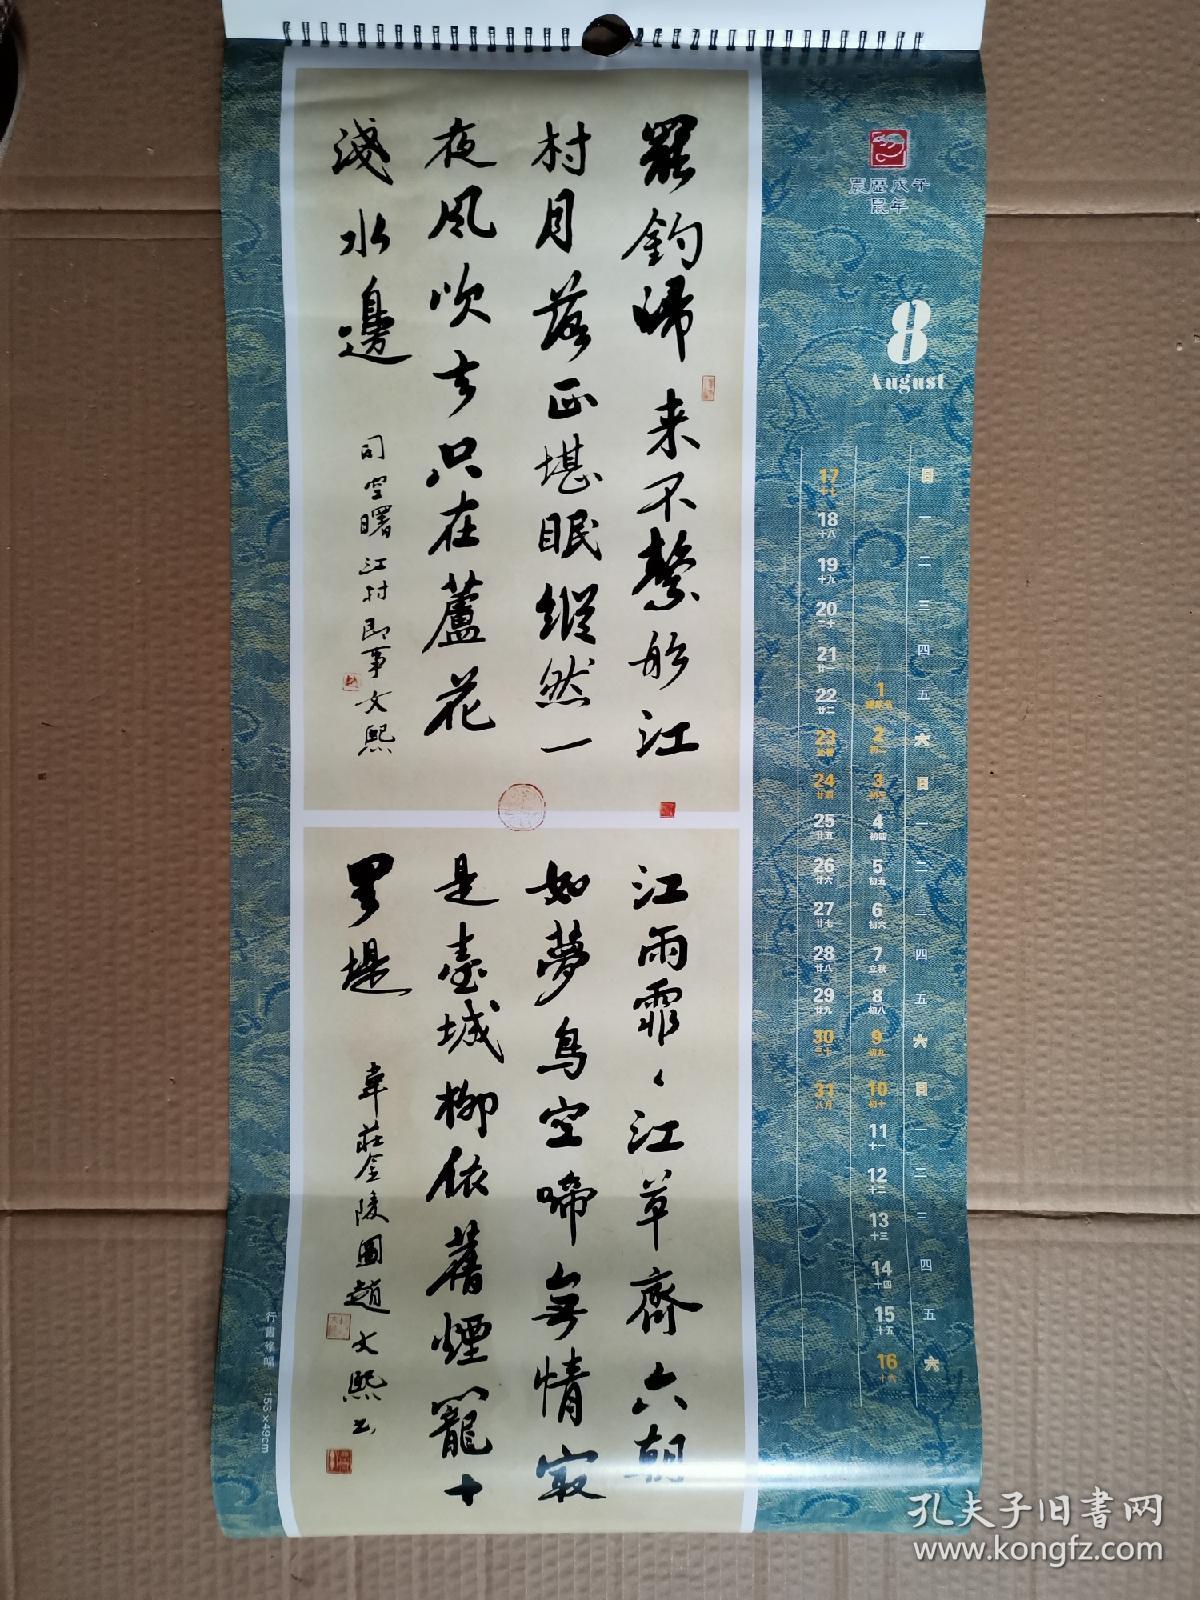 罷釣歸来不繫船江
村月落正堪眠縱然一
夜風吹去只在蘆花
淺水邊
司空曙江村即事文熙
江雨霏〻江草齊六朝
如夢鳥空啼無情㝡
是臺城柳依舊煙籠十
里堤
韋莊金陵圖趙文熙书
農歷戊子
鼠年
8
August
日 一 二 三 四 五 六 日 一 二 三 四 五 六 日 一 二 三 四 五 六
1 2 3 4 5 6 7 8 9 10 11 12 13 14 15 16
初二 初三 初四 初五 初六 立秋 初八 初九 初十 十一 十二 十三 十四 十五 十六
17 18 19 20 21 22 23 24 25 26 27 28 29 30 31
十七 十八 十九 二十 廿一 廿二 處暑 廿四 廿五 廿六 廿七 廿八 廿九 三十 八月
行書條幅 153×49cm
孔夫子旧书网
www.kongfz.com